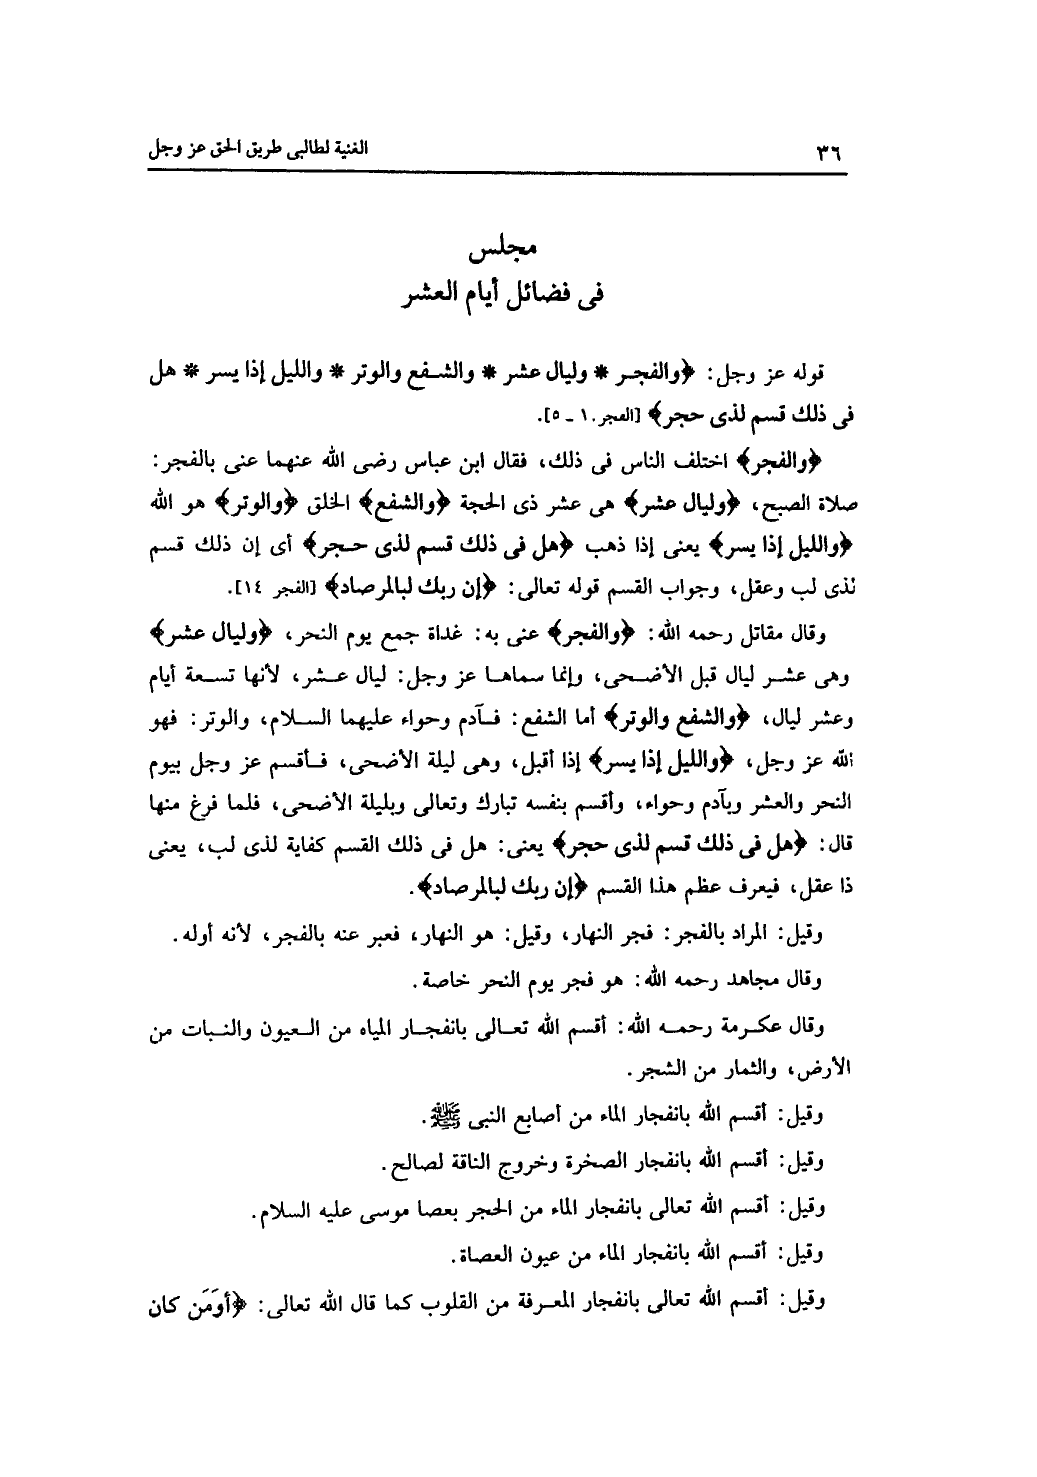 ٣٦
الغنية لطالبى طريق الحق عز وجل
مجلس
فى فضائل أيام العشر
قوله عز وجل: ﴿والفجر * وليال عشر * والشفع والوتر * والليل إذا يسر * هل
فى ذلك قسم لذى حجر﴾ [الفجر. ١ ـ ٥].
﴿والفجر﴾ اختلف الناس فى ذلك، فقال ابن عباس رضى الله عنهما عنى بالفجر:
صلاة الصبح، ﴿وليال عشر﴾ هى عشر ذى الحجة ﴿والشفع﴾ الخلق ﴿والوتر﴾ هو الله
﴿والليل إذا يسر﴾ يعنى إذا ذهب ﴿هل فى ذلك قسم لذى حجر﴾ أى إن ذلك قسم
لذى لب وعقل، وجواب القسم قوله تعالى: ﴿إن ربك لبالمرصاد﴾ [الفجر ١٤].
وقال مقاتل رحمه الله: ﴿والفجر﴾ عنى به: غداة جمع يوم النحر، ﴿وليال عشر﴾
وهى عشر ليال قبل الأضحى، وإنما سماها عز وجل: ليال عشر، لأنها تسعة أيام
وعشر ليال، ﴿والشفع والوتر﴾ أما الشفع: فآدم وحواء عليهما السلام، والوتر: فهو
الله عز وجل، ﴿والليل إذا يسر﴾ إذا أقبل، وهى ليلة الأضحى، فأقسم عز وجل بيوم
النحر والعشر وبآدم وحواء، وأقسم بنفسه تبارك وتعالى وبليلة الأضحى، فلما فرغ منها
قال: ﴿هل فى ذلك قسم لذى حجر﴾ يعنى: هل فى ذلك القسم كفاية لذى لب، يعنى
ذا عقل، فيعرف عظم هذا القسم ﴿إن ربك لبالمرصاد﴾.
وقيل: المراد بالفجر: فجر النهار، وقيل: هو النهار، فعبر عنه بالفجر، لأنه أوله.
وقال مجاهد رحمه الله: هو فجر يوم النحر خاصة.
وقال عكرمة رحمه الله: أقسم الله تعالى بانفجار المياه من العيون والنبات من
الأرض، والثمار من الشجر.
وقيل: أقسم الله بانفجار الماء من أصابع النبى ﷺ.
وقيل: أقسم الله بانفجار الصخرة وخروج الناقة لصالح.
وقيل: أقسم الله تعالى بانفجار الماء من الحجر بعصا موسى عليه السلام.
وقيل: أقسم الله بانفجار الماء من عيون العصاة.
وقيل: أقسم الله تعالى بانفجار المعرفة من القلوب كما قال الله تعالى: ﴿أوَمَن كان